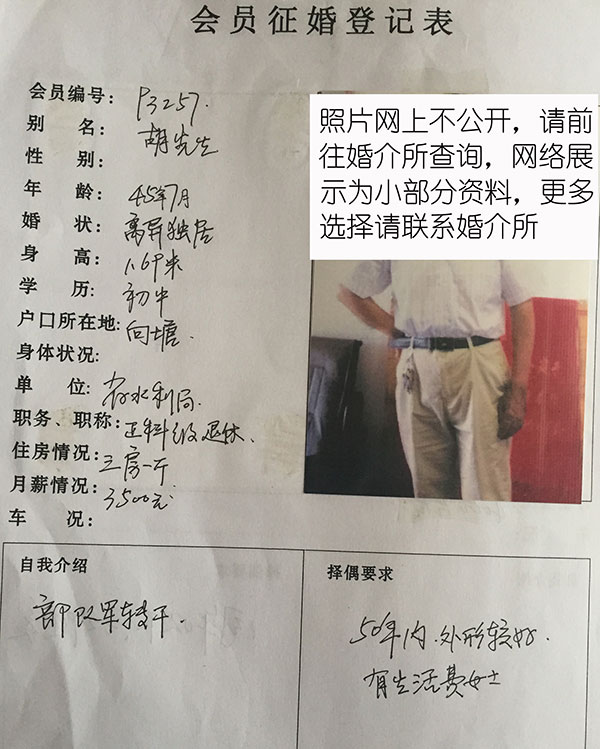 会员征婚登记表
会员编号: P3257.
别 名: 胡先生
性 别:
年 龄: 45年7月
婚 状: 离异独居
身 高: 1.69米
学 历: 初中
户口所在地: 向塘.
身体状况:
单 位: 省水利局.
职务、职称: 正科级退休.
住房情况: 三房一厅
月薪情况: 3500元
车 况:
照片网上不公开，请前
往婚介所查询，网络展
示为小部分资料，更多
选择请联系婚介所
自我介绍
部队军转干
择偶要求
50年内.外形较好.
有生活费女士